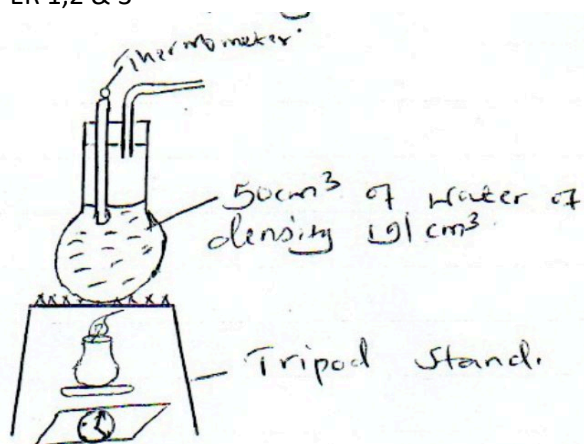 ER 1,2 & 3
Thermometer.
50cm³ of water of
density 1g/cm³
Tripod Stand.